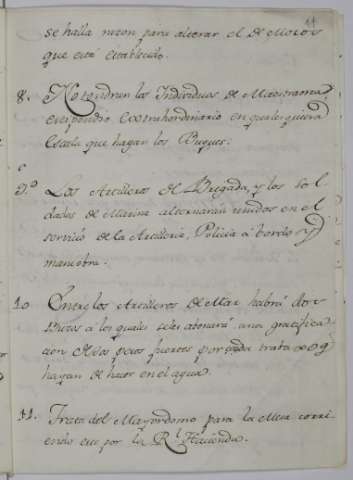 44
se halla razon para alterar el de Motor
que está establecido.
8. No tendran los Individuos de Maestranza
estipendio extrahordinario en qualesquiera
Escala que hagan los Buques.
9.º Los Artilleros de Brigada, y los Sol
dados de Marina alternarán unidos en el
servicio de la Artilleria, Policia á bordo y
maniobra.
10 Entre los Artilleros de Mar habrá dos
Buzos á los quales se les abonará una gratifica
cion de dos pesos fuertes por cada
hayan de hacer en el agua.
11. Trata del Mayordomo para la Mesa corri
endo esto por la Rl. Hacienda.